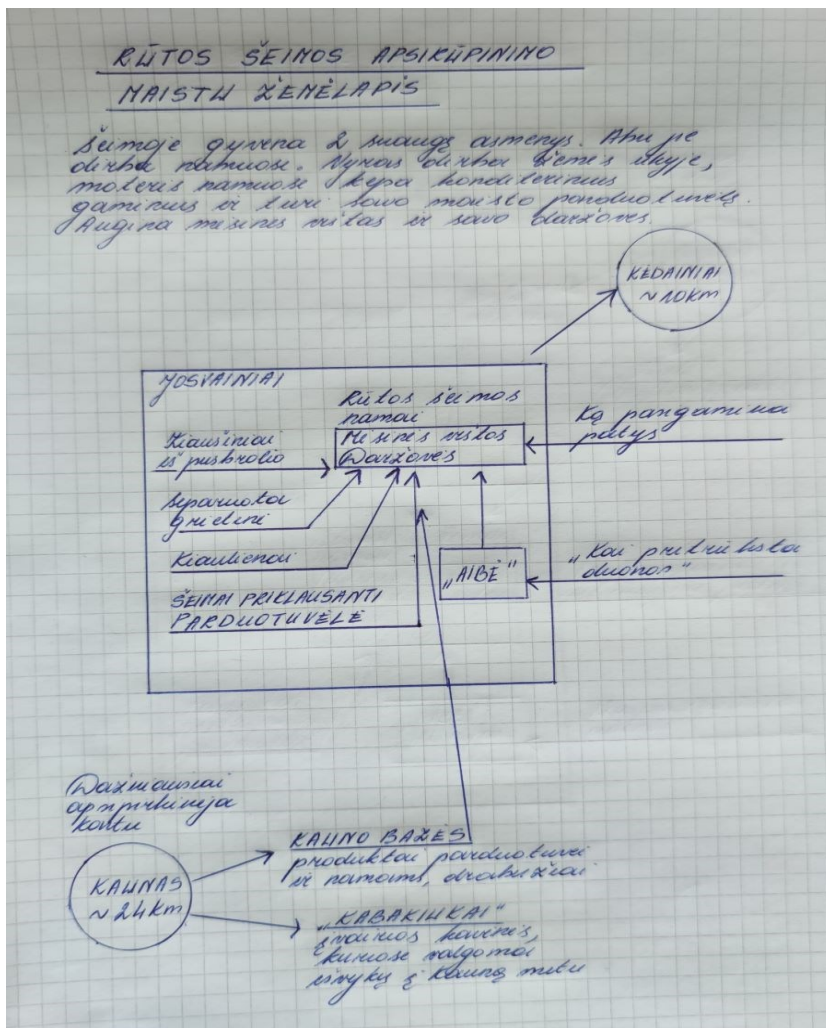 RŪTOS ŠEIMOS APSIRŪPINIMO
MAISTU ŽEMĖLAPIS
Šeimoje gyvena 2 suaugę asmenys. Abu ne
dirba namuose. Vyras dirba žemės ūkyje,
moteris namuose kepa konditerinius
gaminius ir turi savo maisto parduotuvėlę.
Augina mėsines vištas ir savo daržoves.
KĖDAINIAI
JOSVAINIAI
Rūtos šeimos
namai
Mėsinės vištos
Daržovės
Ką pangamina
patys
Kiaušiniai
iš pusbrolio
Separuota
grietinė
Kiauliena
„AIBĖ"
„Kai pritrūksta
duonos"
ŠEIMAI PRIKLAUSANTI
PARDUOTUVĖLĖ
Dažniausiai
apsipirkinėja
kartu
KAUNAS
~24km
KAUNO BAZĖS
produktai parduotuvei
ir namams, drabužiai
„KABAKIUKAI"
įvairios kavinės,
kuriose valgoma
išvykų į Kauną metu